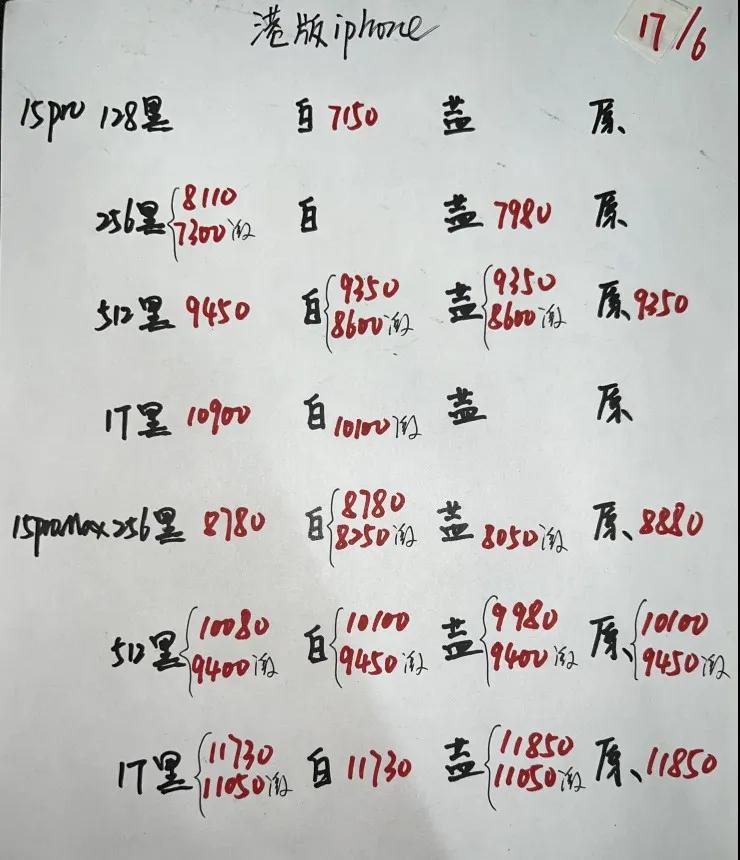 港版iphone 17/6
15pro 128黑 白 7150 蓝 原、
256黑 8110 7300激 白 蓝 7980 原、
512黑 9450 白 9350 8600激 蓝 9350 8600激 原、9250
1T黑 10900 白 10100激 蓝 原、
15proMax 256黑 8780 白 8780 8250激 蓝 8050激 原、8880
512黑 10080 9400激 白 10100 9450激 蓝 9980 9400激 原、10100 9450激
1T黑 11730 11050激 白 11730 蓝 11850 11050激 原、11850